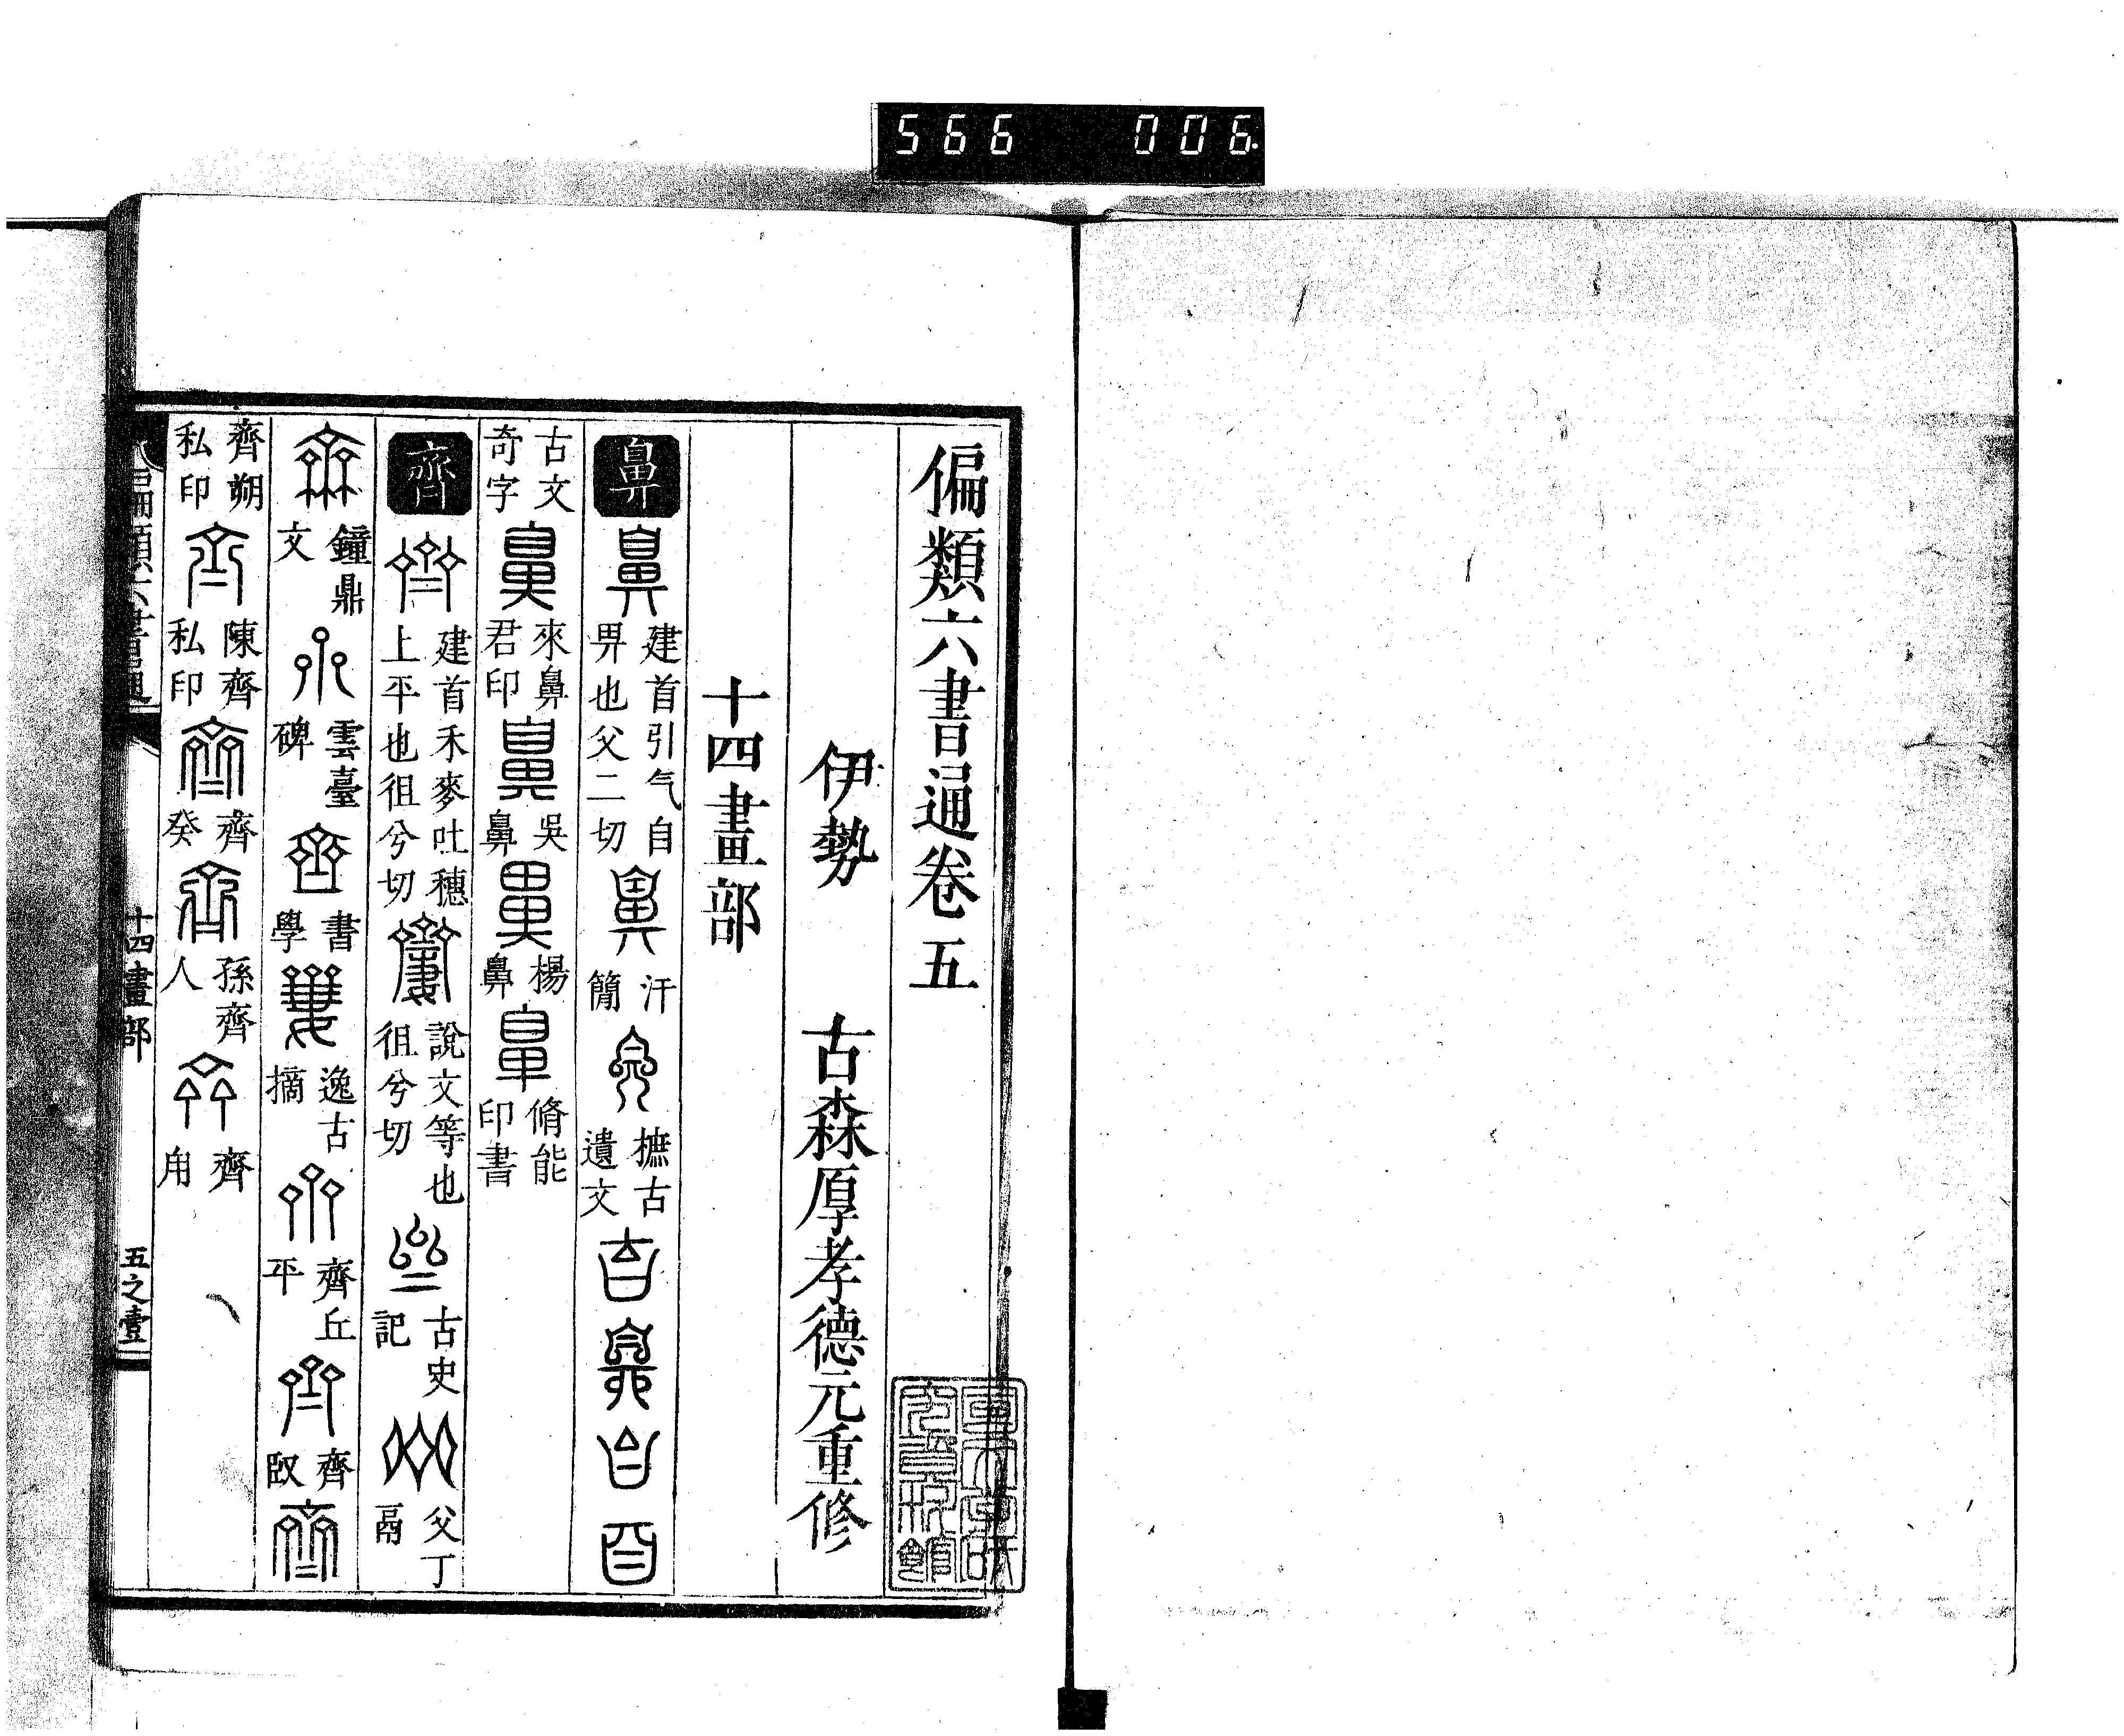 566 006
偏類六書通卷五
伊勢 古森厚孝德元重修
十四畫部
鼻 建首引气自畀也父二切 汗簡 摭古遺文
古文奇字 來鼻君印 吳鼻 楊鼻 脩能印書
齊 建首禾麥吐穗上平也徂兮切 說文等也徂兮切 古史記 父丁鬲
鐘鼎文 雲臺碑 書學 逸古摘 齊丘平 齊㕞
齊朔私印 陳齊私印 齊癸 孫齊人 齊甪
偏類六書通 十四畫部 五之壹